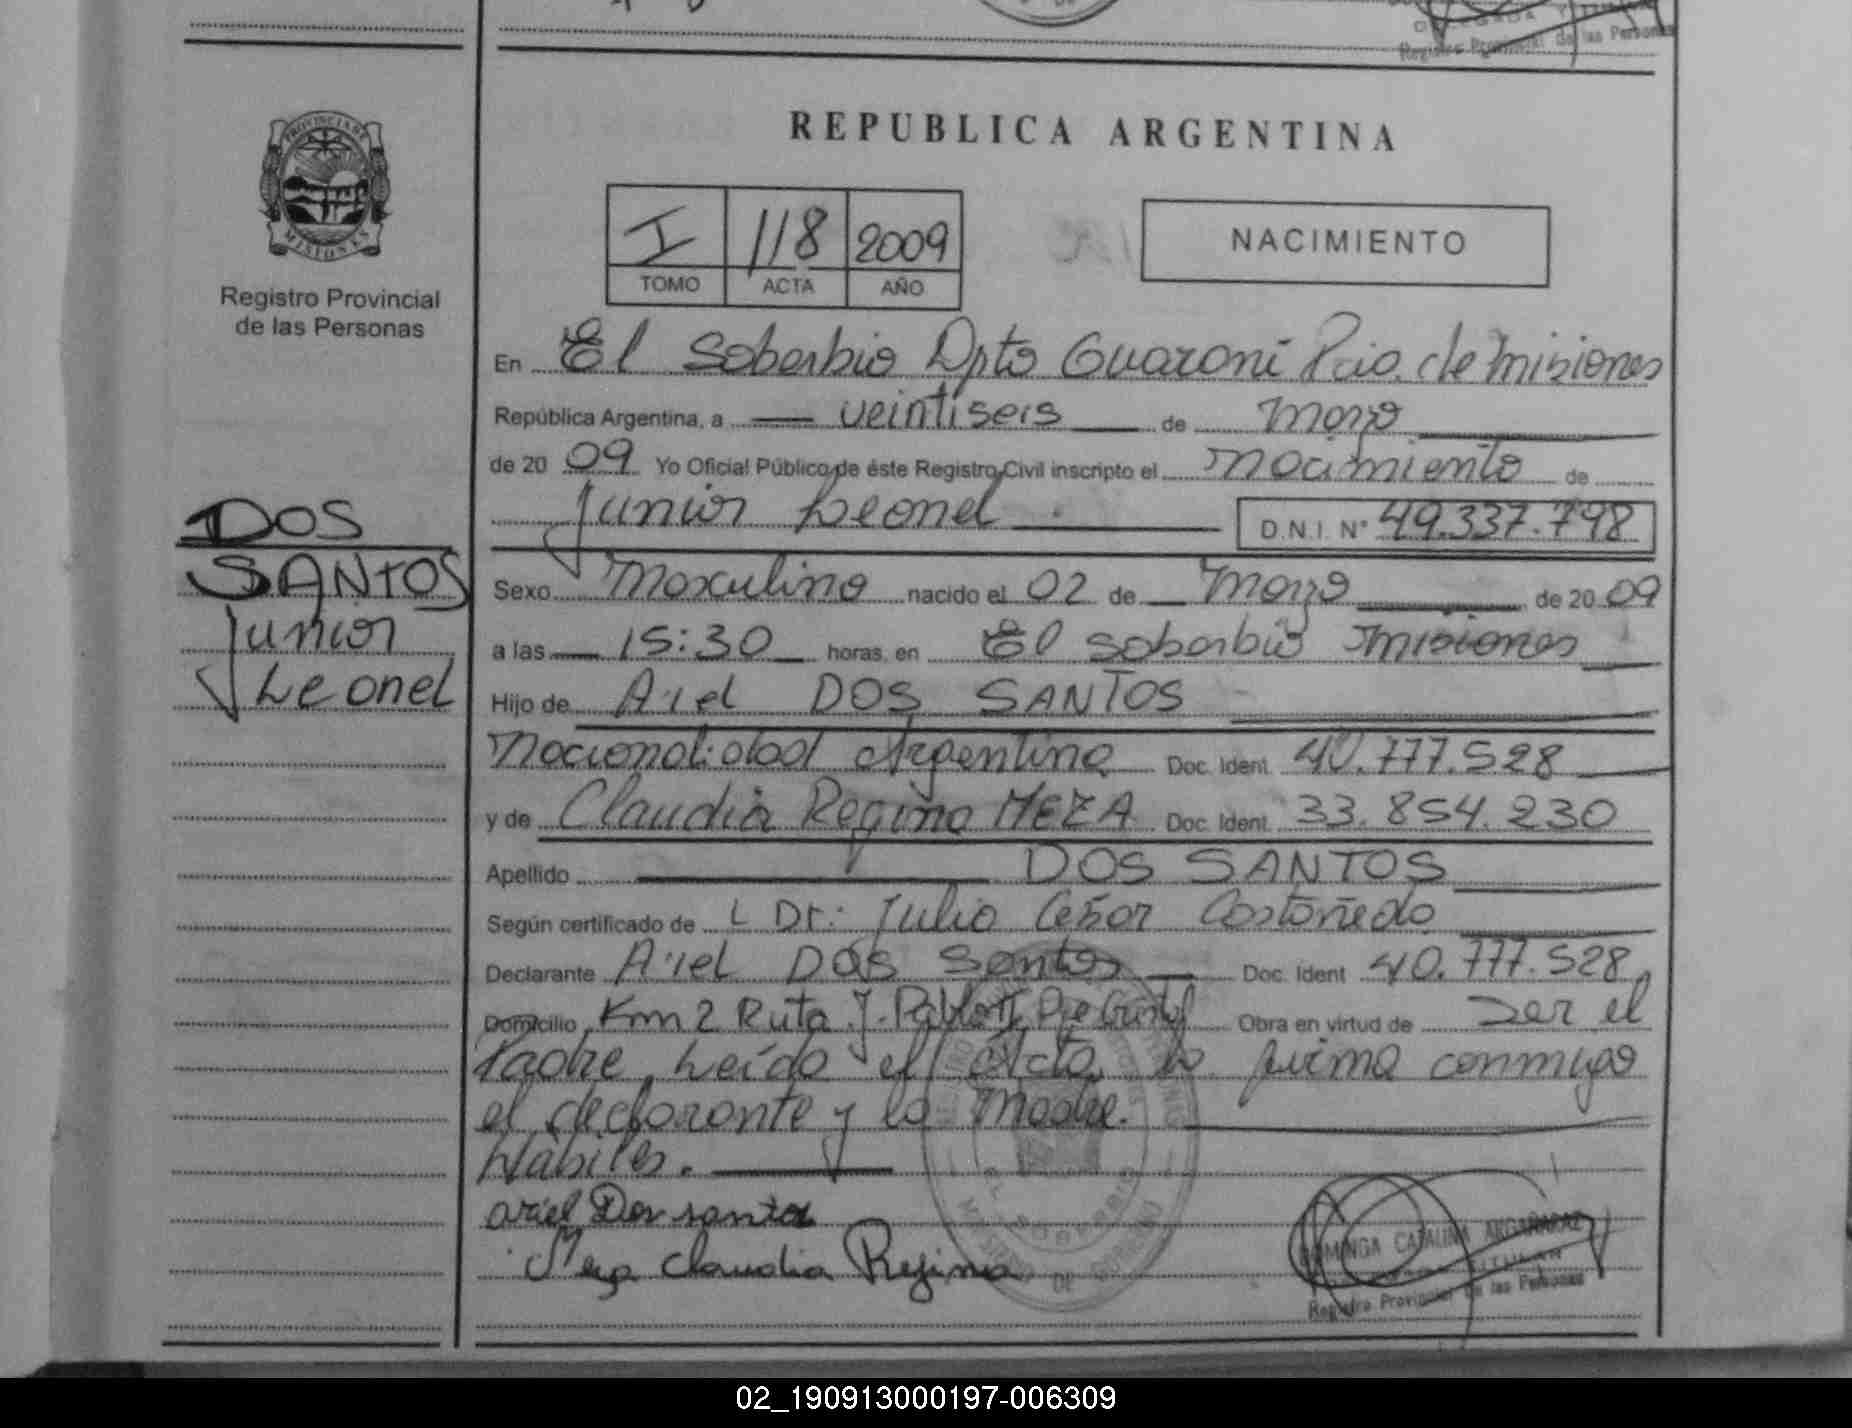 Registro Provincial de las Personas
REPUBLICA ARGENTINA
PROVINCIA DE
MISIONES
Registro Provincial
de las Personas
I 118 2009
TOMO ACTA AÑO
NACIMIENTO
En El Soberbio Dpto Guarani Pcia. de misiones
República Argentina, a veintiseis de mayo
de 2009 Yo Oficial Público de éste Registro Civil inscripto el nacimiento de
Junior Leonel D.N.I. N° 49.337.798
DOS
SANTOS
Junior
Leonel
Sexo Masculino nacido el 02 de mayo de 2009
a las 15:30 horas, en El soberbio misiones
Hijo de Ariel DOS SANTOS
Nacionalidad Argentina Doc. Ident. 40.777.528
y de Claudia Regina MEZA Doc. Ident. 33.854.230
Apellido DOS SANTOS
Según certificado de L Dr: Julio Cesar Castañeda
Declarante Ariel DOS Santos Doc. Ident. 40.777.528
Domicilio Km 2 Ruta J. Pablo II Obra en virtud de ser el
Padre Leída el Acta la firma conmigo
el declarante y la Madre.
Hábiles.
ariel Dos santos
Meza claudia Rejina
EL SOBERBIO
DOMINGA CATALINA ARGAÑARAZ
Registro Provincial de las Personas
02_190913000197-006309